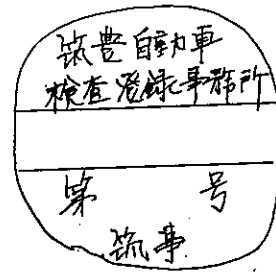 筑豊自動車
検査登録事務所
第 号
筑事